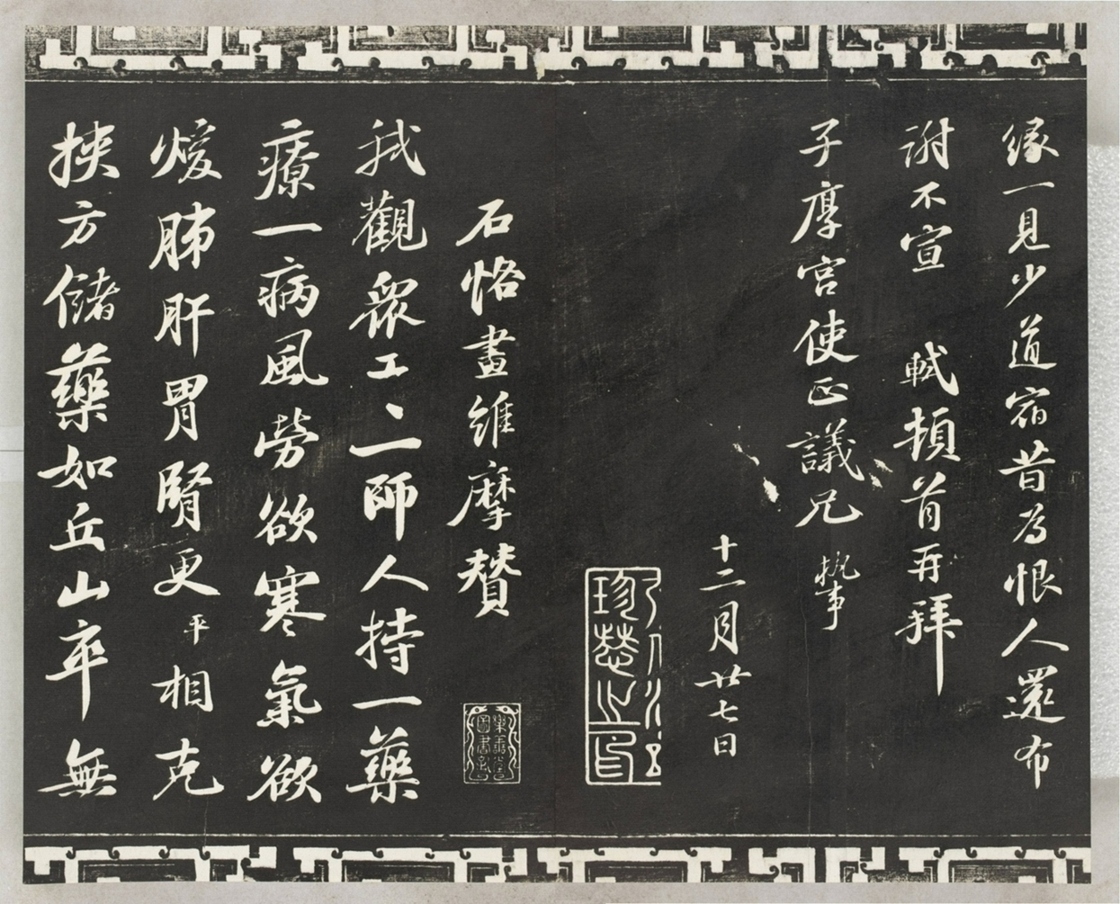 緣一見少道宿昔為恨人還布
謝不宣 軾頓首再拜
子厚宮使正議兄 執事
十二月廿七日
石恪畫維摩贊
我觀眾工工一師人持一藥
療一病風勞欲寒氣欲
煖肺肝胃腎更平相克
挾方儲藥如丘山卒無